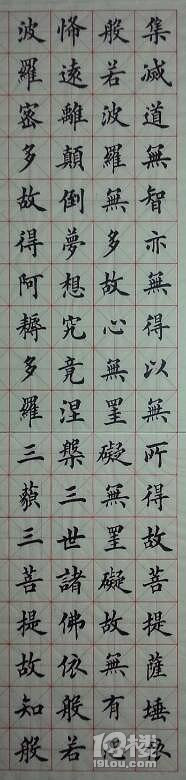 集減道無智亦無得以無所得故菩提薩埵依
般若波羅無多故心無罣礙無罣礙故無有
怖遠離顛倒夢想究竟涅槃三世諸佛依般若
波羅密多故得阿耨多羅三藐三菩提故知般
18楼